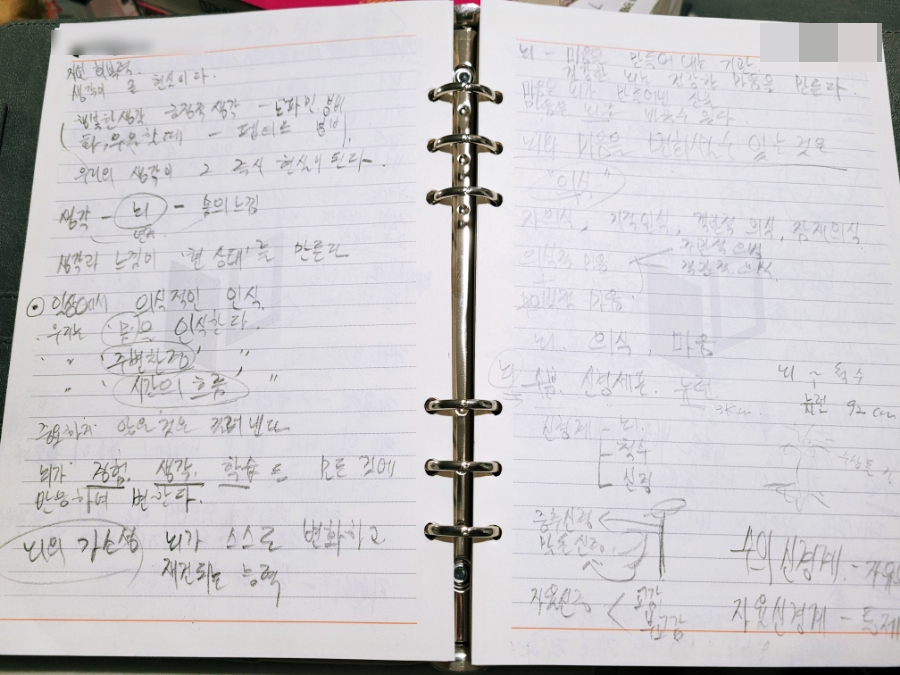 생각이 곧 현실이다.
행복한생각 긍정적 생각 - 도파민 분비
화, 우울할때 - 펩티드 분비
우리의 생각이 그 즉시 현실이 된다.
생각 - 뇌 - 몸의느낌
생각과 느낌이 '현 상태'를 만든다
일상에서 의식적인 인식
우리는 몸으로 인식한다.
" 주변환경 "
" 시간의 흐름 "
중요하지 않은것은 걸러낸다
뇌가 경험, 생각, 학습 등 모든 것에
반응하며 변한다.
뇌의 가소성 뇌가 스스로 변화하고
재건되는 능력
뇌 - 마음을 만들어 내는 기관
건강한 뇌는 건강한 마음을 만든다.
마음은 뇌가 만들어낸 산물
마음은 뇌를 바꿀수 있다
뇌와 마음을 변화시킬수 있는 것은
"의식"
자의식, 지각인식, 객관적 의식, 잠재의식
의식적 마음
뇌. 의식, 마음
뇌 수분. 신경세포. 뉴런. 뇌 ~ 척수
뉴런 92cm
신경계 - 뇌.
척수
신경
중추신경
말초신경
수의신경계. -
자율신경 < 교감 부교감 자율신경계 -